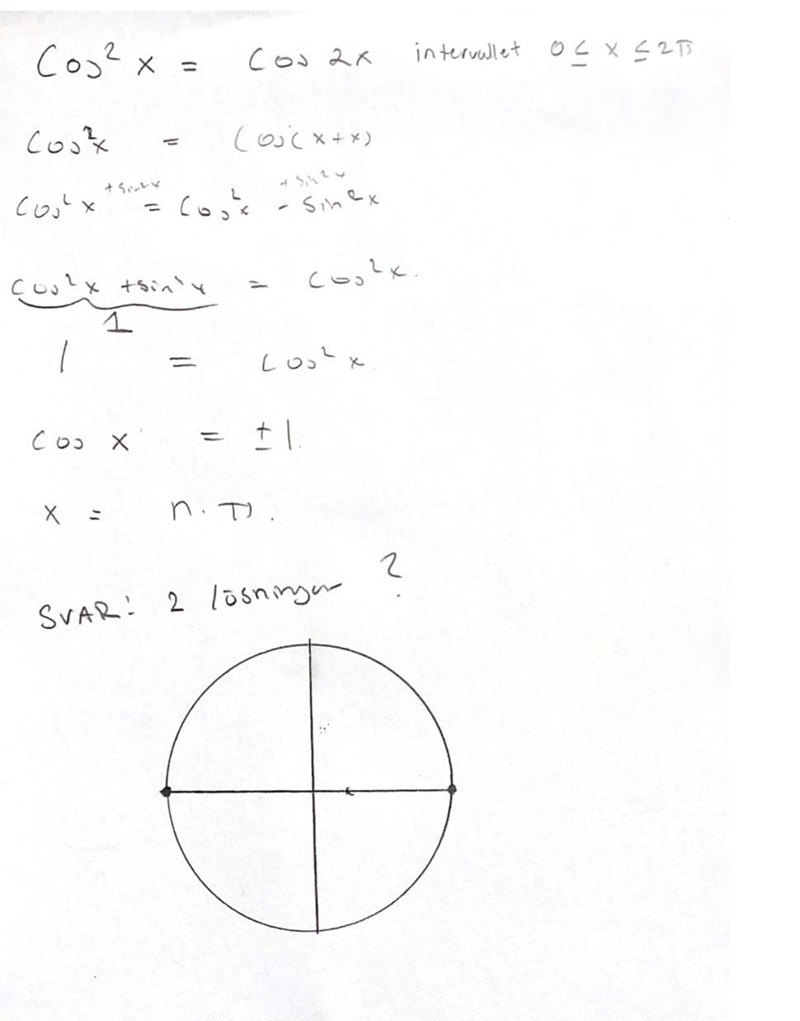 Cos² x = Cos 2x intervallet 0 ≤ x ≤ 2π
Cos²x = Cos(x+x)
Cos²x +sin²x = Cos²x - Sin²x +sin²x
Cos²x +sin²x = Cos²x.
1
1 = Cos² x
Cos x = ±1.
x = n·π.
SVAR: 2 lösningar ?